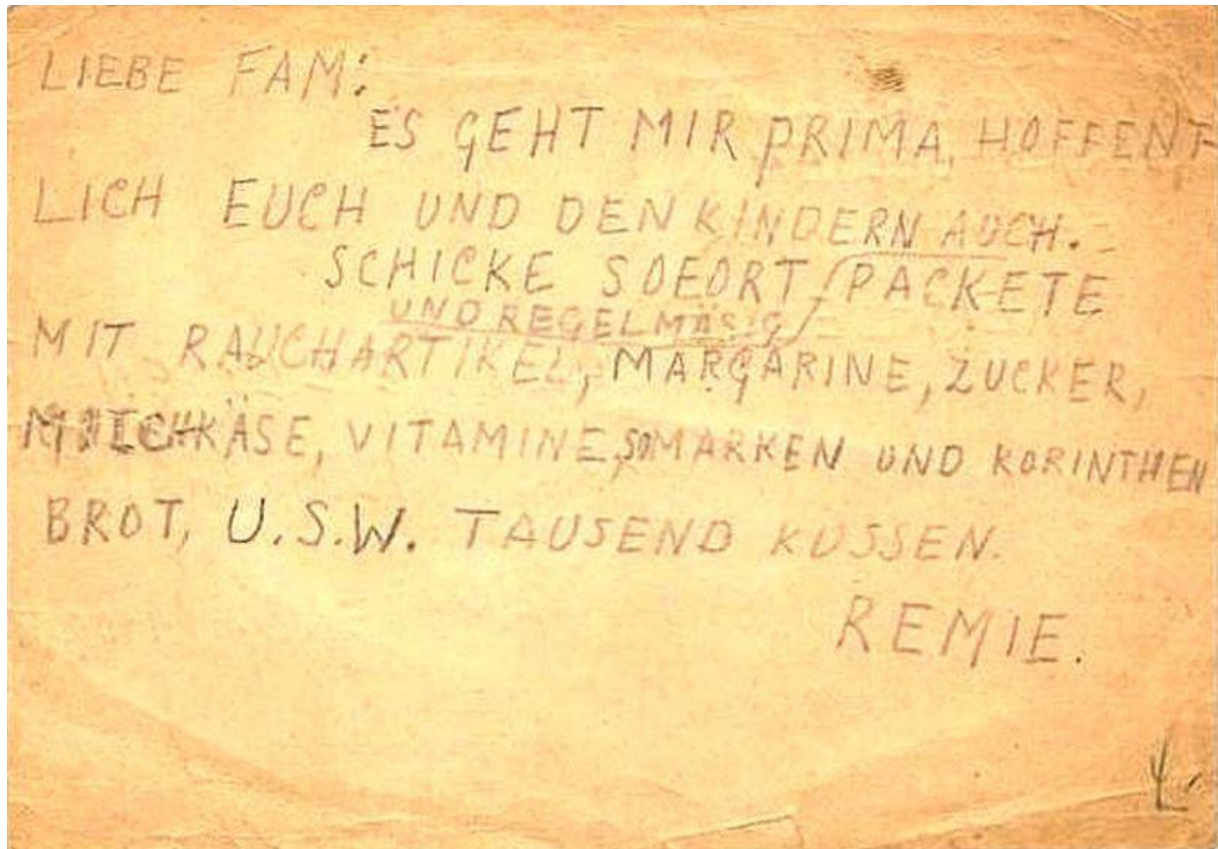 LIEBE FAM:
ES GEHT MIR PRIMA, HOFFENT-
LICH EUCH UND DEN KINDERN AUCH.
SCHICKE SOFORT PACKETE
UND REGELMÄSIG
MIT RAUCHARTIKEL, MARGARINE, ZUCKER,
KÄSE, VITAMINE, MARKEN UND KORINTHEN
BROT, U.S.W. TAUSEND KUSSEN.
REMIE.